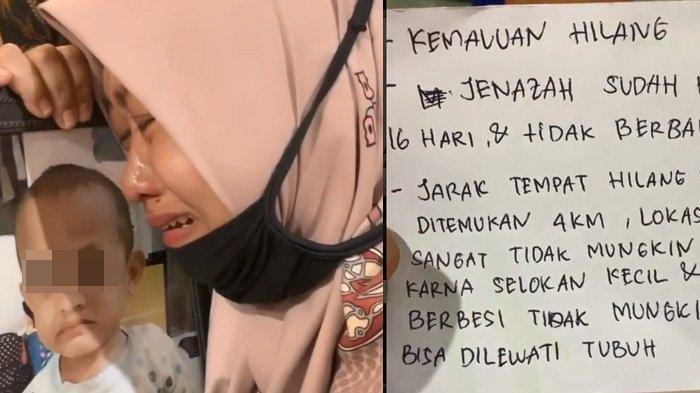 - KEMALUAN HILANG
- JENAZAH SUDAH
16 HARI, & TIDAK
- JARAK TEMPAT HILANG
DITEMUKAN 4KM, 
SANGAT TIDAK MUNGKIN
KARNA SELOKAN KECIL &
BERBESI TIDAK
BISA DILEWATI TUBUH